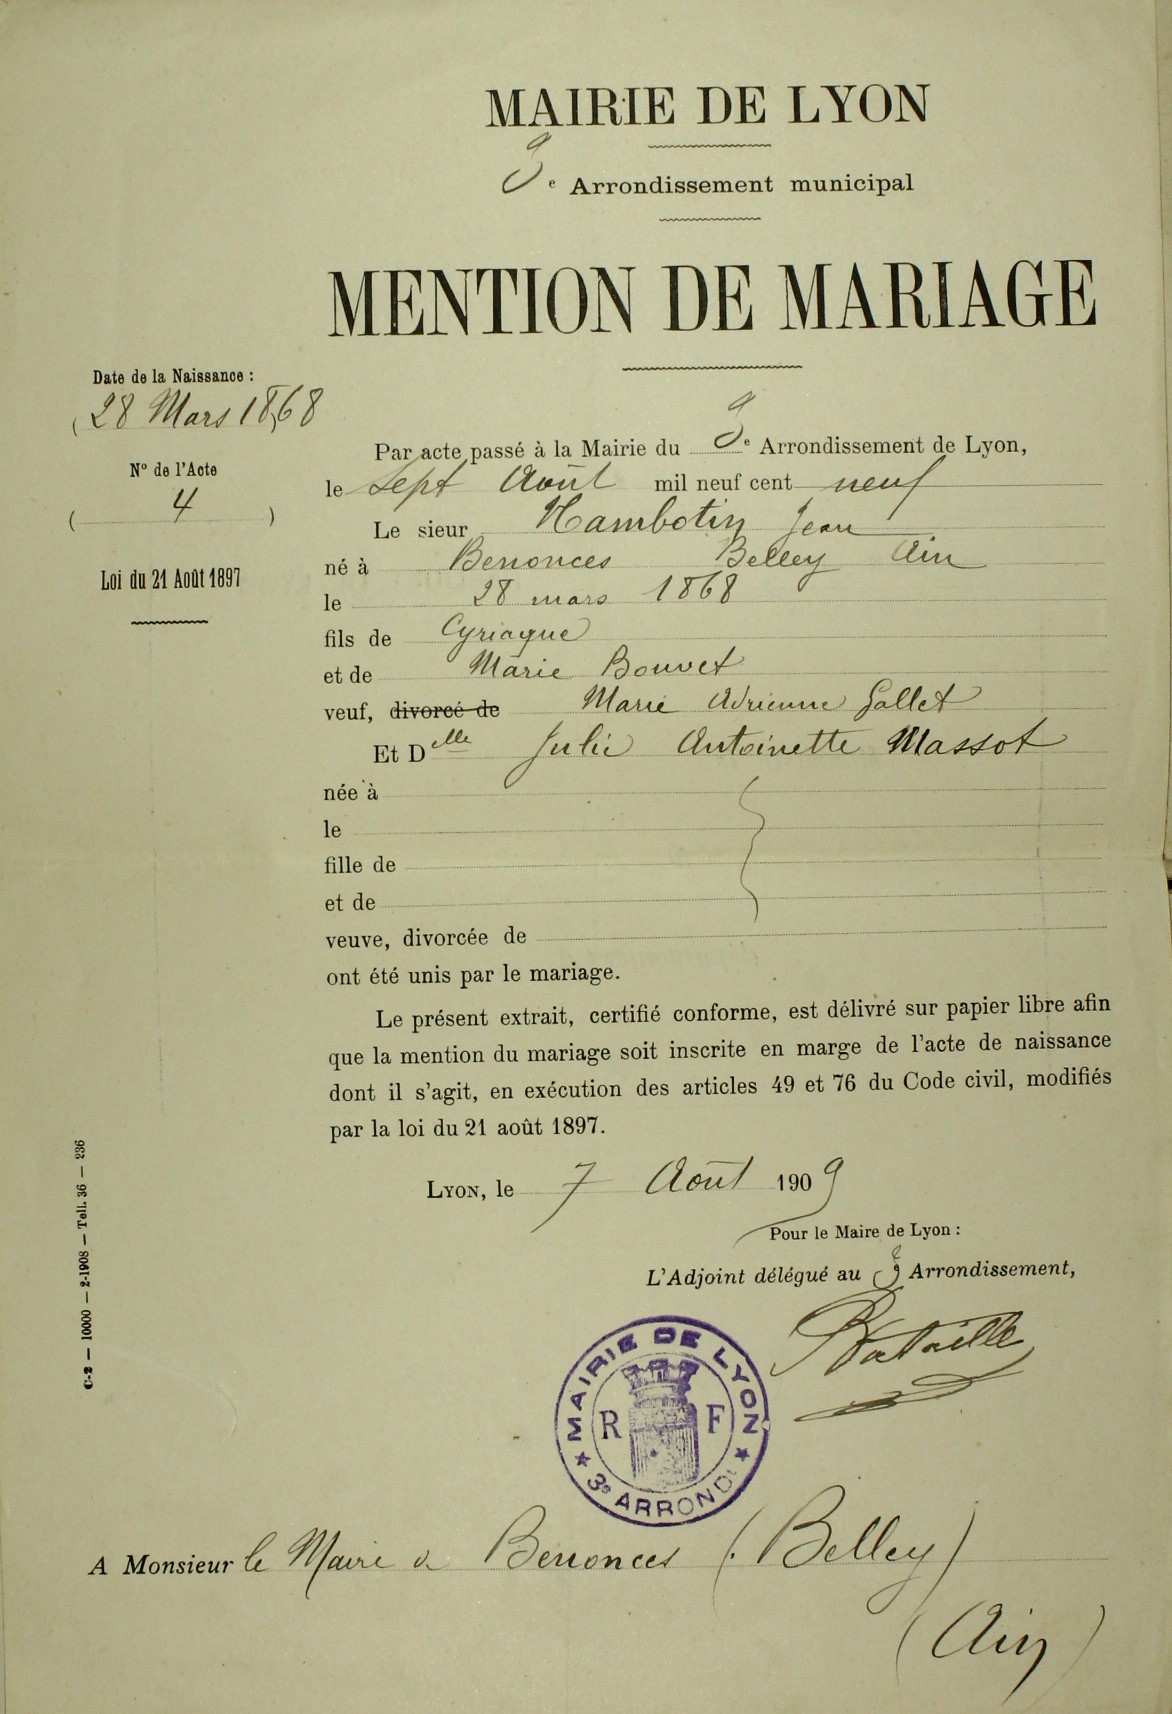 MAIRIE DE LYON
3e Arrondissement municipal
MENTION DE MARIAGE
Date de la Naissance :
(28 Mars 1868
N° de l'Acte
( 4 )
Loi du 21 Août 1897
Par acte passé à la Mairie du 3e Arrondissement de Lyon,
le Sept Août mil neuf cent neuf
Le sieur Hambotin Jean
né à Benonces Belley Ain
le 28 mars 1868
fils de Cyriaque
et de Marie Bouvet
veuf, divorcé de Marie Adrienne Gallet
Et Delle Julie Antoinette Massot
née à
le
fille de
et de
veuve, divorcée de
ont été unis par le mariage.
Le présent extrait, certifié conforme, est délivré sur papier libre afin
que la mention du mariage soit inscrite en marge de l'acte de naissance
dont il s'agit, en exécution des articles 49 et 76 du Code civil, modifiés
par la loi du 21 août 1897.
LYON, le 7 Août 1909
Pour le Maire de Lyon :
L'Adjoint délégué au 3e Arrondissement,
Bataille
MAIRIE DE LYON
R F
★ 3e ARRONDt ★
A Monsieur le Maire de Benonces (Belley)
(Ain)
C-2 — 10000 — 2-1908 — Tell. 36 — 236